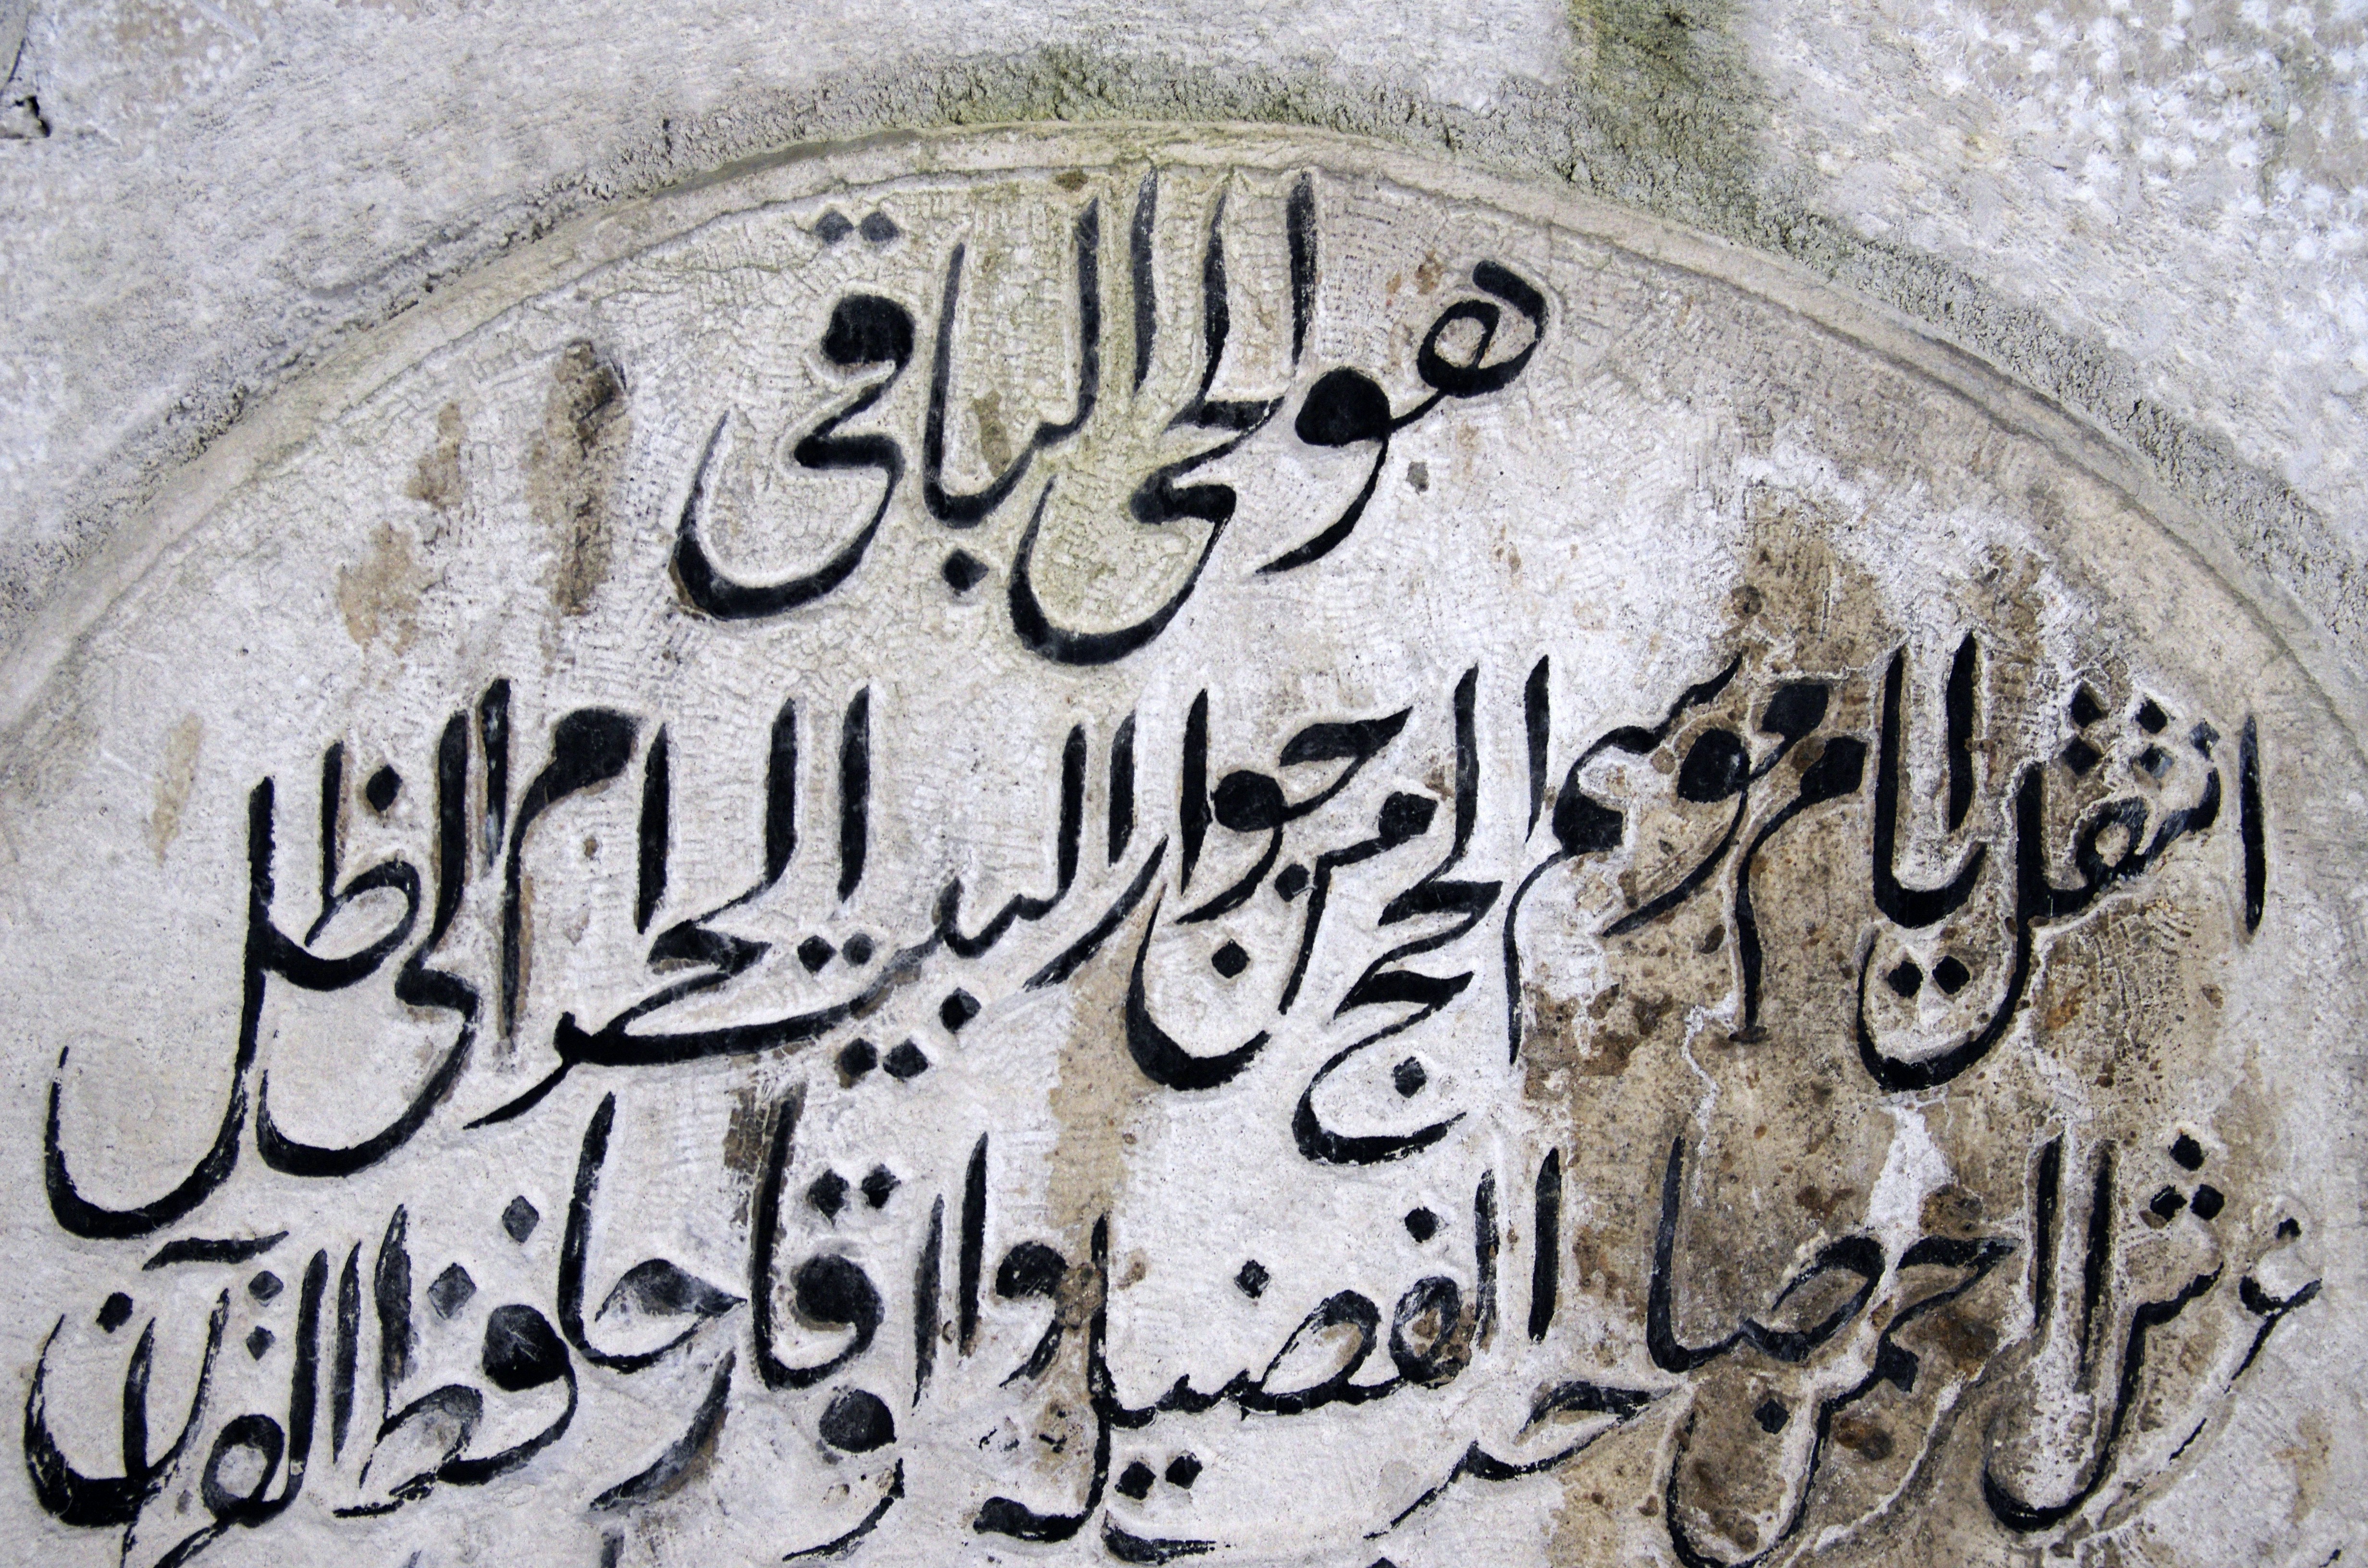 هو الحي الباقي
انتقل بايام موسم الحج من جوار البيت الحرام الى ظل
عرش الرحمن صاحب الفضيلة والوقار حافظ القرآن